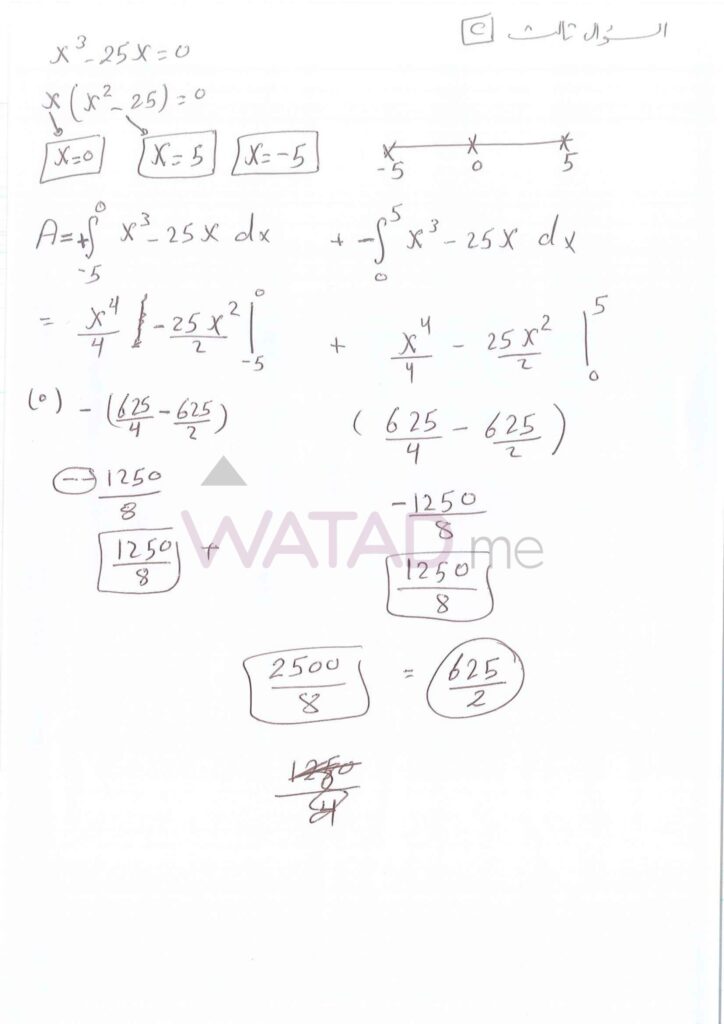 السؤال ثالث C
x³ - 25x = 0
x(x² - 25) = 0
x=0 x=5 x=-5
-5 0 5
A = +∫₋₅⁰ x³ - 25x dx + -∫₀⁵ x³ - 25x dx
= x⁴/4 - 25x²/2 |₋₅⁰ + x⁴/4 - 25x²/2 |₀⁵
(0) - (625/4 - 625/2) (625/4 - 625/2)
-- 1250/8 -1250/8
1250/8 + 1250/8
WATAD.me
2500/8 = 625/2